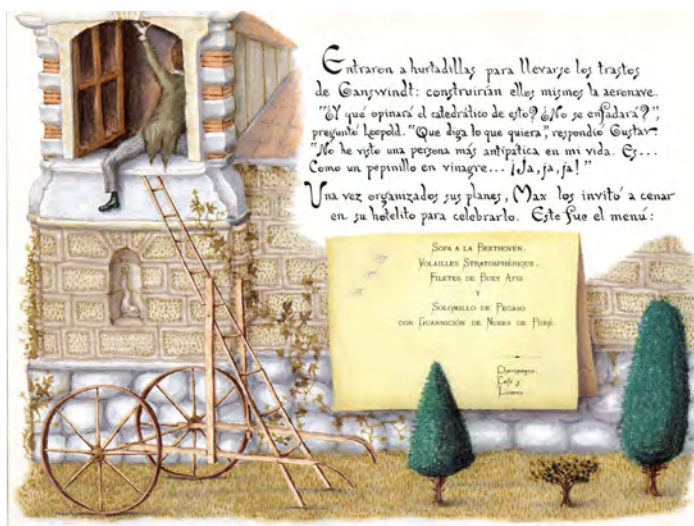 Entraron a hurtadillas para llevarse los trastos
de Ganswindt: construirían ellos mismos la aeronave.
"¿Y qué opinará el catedrático de esto? ¿No se enfadará?",
preguntó Leopold. "Que diga lo que quiera", respondió Gustav.
"No he visto una persona más antipática en mi vida. Es...
Como un pepinillo en vinagre... ¡Ja, ja, ja!"
Una vez organizados sus planes, Max los invitó a cenar
en su hotelito para celebrarlo. Este fue el menú:
SOPA A LA BEETHOVEN.
VOLAILLES STRATOSPHÉRIQUE.
FILETES DE BUEY APIS
Y
SOLOMILLO DE PEGASO
CON GUARNICIÓN DE NUBES DE PURÉ
Champagne.
Café y
Licores